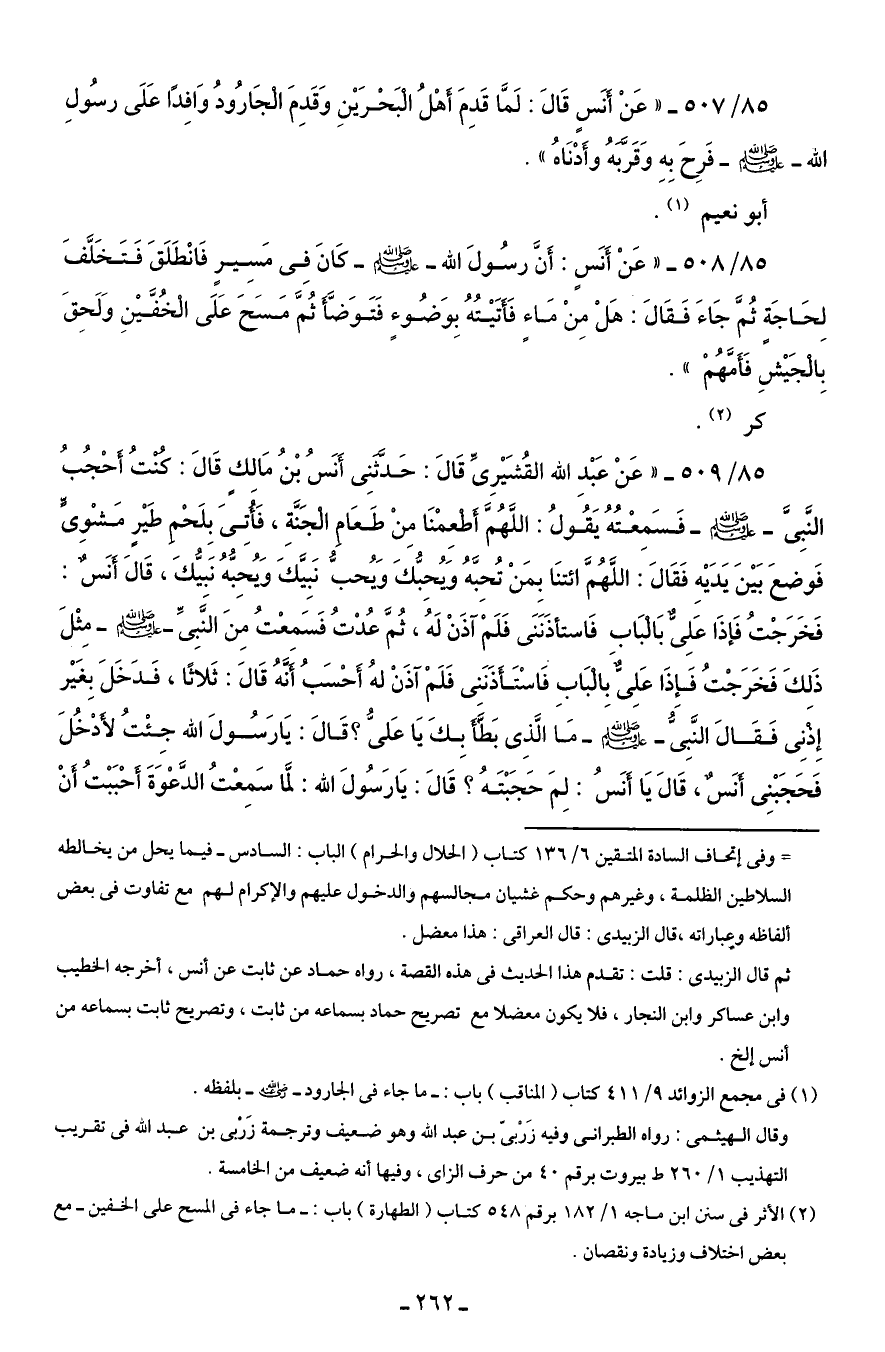 ٨٥/ ٥٠٧ ـ « عَنْ أَنَسٍ قَالَ : لَمَّا قَدِمَ أَهْلُ الْبَحْرَيْنِ وَقَدِمَ الْجَارُودُ وَافِدًا عَلَى رسُولِ
الله ـ ﷺ ـ فَرِحَ بِهِ وَقَرَّبَهُ وأَدْنَاهُ » .
أبو نعيم (١) .
٨٥/ ٥٠٨ ـ « عَنْ أَنَسٍ : أَنَّ رسُولَ الله ـ ﷺ ـ كَانَ فِى مَسِيرٍ فَانْطَلَقَ فَتَخَلَّفَ
لِحَاجَةٍ ثُمَّ جَاءَ فَقَالَ : هَلْ مِنْ مَاءٍ فَأَتَيْتُهُ بِوَضُوءٍ فَتَوَضَّأَ ثُمَّ مَسَحَ عَلَى الْخُفَّيْنِ وَلَحِقَ
بِالْجَيْشِ فَأَمَّهُمْ » .
كر (٢) .
٨٥/ ٥٠٩ ـ « عَنْ عَبْدِ الله القُشَيْرِىِّ قَالَ : حَدَّثَنِى أَنَسُ بْنُ مَالِكٍ قَالَ : كُنْتُ أَحْجُبُ
النَّبِىَّ ـ ﷺ ـ فَسَمِعْتُهُ يَقُولُ : اللَّهُمَّ أَطْعِمْنَا مِنْ طَعَامِ الْجَنَّةِ ، فَأُتِىَ بِلَحْمِ طَيْرٍ مَشْوِىٍّ
فَوضِعَ بَيْنَ يَدَيْهِ فَقَالَ : اللَّهُمَّ ائتنَا بِمَنْ تُحبَّهُ وَيُحبكَ وَيُحبُّ نَبِيَّكَ وَيُحبُّهُ نَبِيُّكَ ، قَالَ أَنَسٌ :
فَخَرَجْتُ فَإِذَا عَلِىٌّ بَالْبَابِ فَاستأذَنَنِى فَلَمْ آذَنْ لَهُ ، ثُمَّ عُدْتُ فَسَمِعْتُ مِنَ النَّبِىِّ ـ ﷺ ـ مِثْلَ
ذَلِكَ فَخَرَجْتُ فَإِذَا عَلِىٌّ بِالْبَابِ فَاسْتَأذَنَنِى فَلَمْ آذَنْ لهُ أَحْسَبُ أَنَّهُ قَالَ : ثَلاثًا ، فَدخَلَ بِغَيْرِ
إِذْنِى فَقَالَ النَّبِىُّ ـ ﷺ ـ مَا الَّذِى بَطَّأَ بِكَ يَا عَلىُّ ؟ قَالَ : يَارَسُولَ الله جِئْتُ لأَدْخُلَ
فَحَجَبْنِى أَنَسٌ ، قَالَ يَا أَنَسُ : لِمَ حَجَبْتَهُ ؟ قَالَ : يَارَسُولَ الله : لَمَّا سَمِعْتُ الدَّعْوَةَ أَحْبَبْتُ أَنْ
= وفى إتحاف السادة المتقين ٦/ ١٣٦ كتاب ( الحلال والحرام ) الباب : السادس ـ فيما يحل من يخالطه
السلاطين الظلمة ، وغيرهم وحكم غشيان مجالسهم والدخول عليهم والإكرام لهم مع تفاوت فى بعض
ألفاظه وعباراته ،قال الزبيدى : قال العراقى : هذا معضل .
ثم قال الزبيدى : قلت : تقدم هذا الحديث فى هذه القصة ، رواه حماد عن ثابت عن أنس ، أخرجه الخطيب
وابن عساكر وابن النجار ، فلا يكون معضلا مع تصريح حماد بسماعه من ثابت ، وتصريح ثابت بسماعه من
أنس إلخ .
(١) فى مجمع الزوائد ٩/ ٤١١ كتاب ( المناقب ) باب : ـ ما جاء فى الجارود ـ رضي الله عنه ـ بلفظه .
وقال الهيثمى : رواه الطبرانى وفيه زَرْبىّ بن عبد الله وهو ضعيف وترجمة زَرْبى بن عبد الله فى تقريب
التهذيب ١/ ٢٦٠ ط بيروت برقم ٤٠ من حرف الزاى ، وفيها أنه ضعيف من الخامسة .
(٢) الأثر فى سنن ابن ماجه ١/ ١٨٢ برقم ٥٤٨ كتاب ( الطهارة ) باب : ـ ما جاء فى المسح على الخفين ـ مع
بعض اختلاف وزيادة ونقصان .
ـ ٢٦٢ ـ